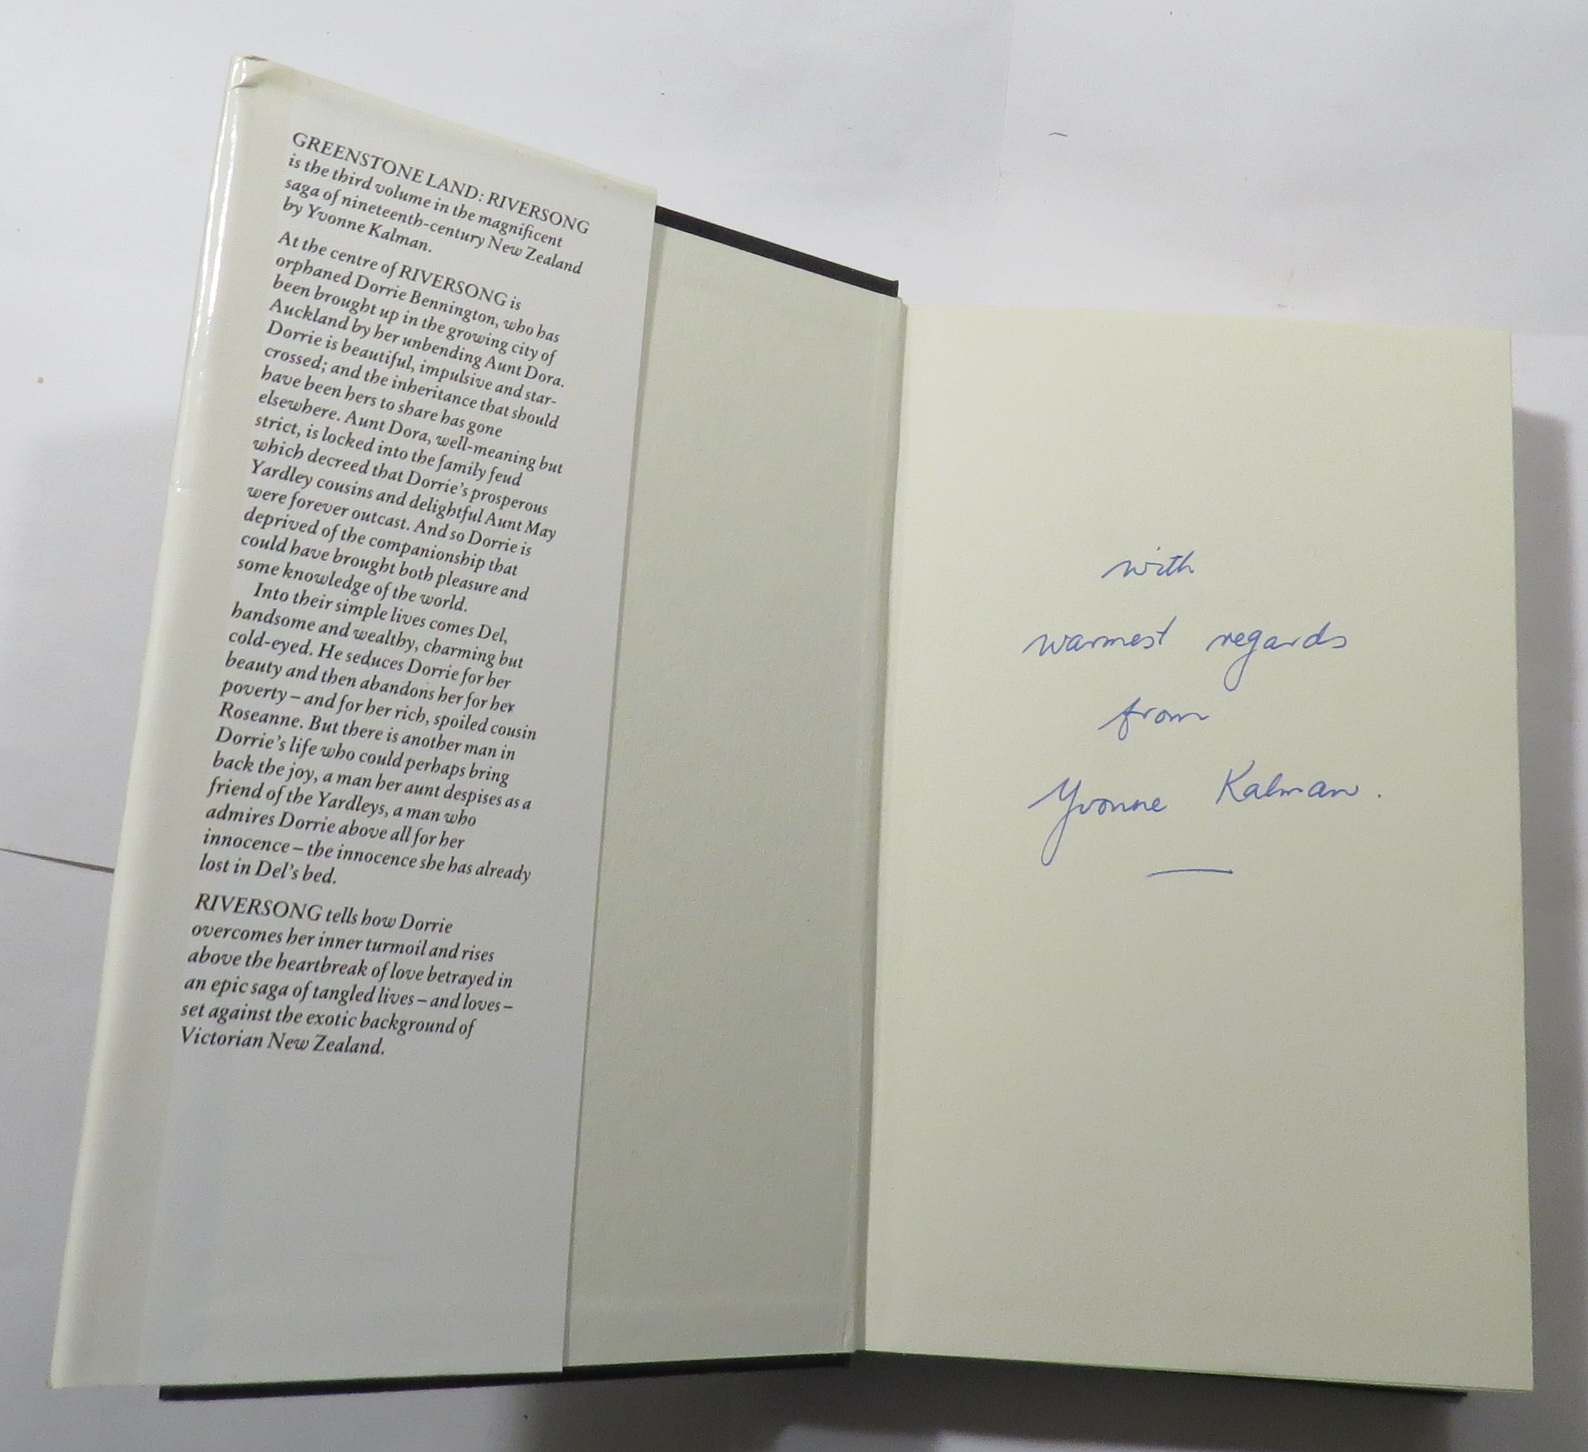 GREENSTONE LAND: RIVERSONG
is the third volume in the magnificent
saga of nineteenth-century New Zealand
by Yvonne Kalman.
At the centre of RIVERSONG is
orphaned Dorrie Bennington, who has
been brought up in the growing city of
Auckland by her unbending Aunt Dora.
Dorrie is beautiful, impulsive and star-
crossed; and the inheritance that should
have been hers to share has gone
elsewhere. Aunt Dora, well-meaning but
strict, is locked into the family feud
which decreed that Dorrie's prosperous
Yardley cousins and delightful Aunt May
were forever outcast. And so Dorrie is
deprived of the companionship that
could have brought both pleasure and
some knowledge of the world.
Into their simple lives comes Del,
handsome and wealthy, charming but
cold-eyed. He seduces Dorrie for her
beauty and then abandons her for her
poverty – and for her rich, spoiled cousin
Roseanne. But there is another man in
Dorrie's life who could perhaps bring
back the joy, a man her aunt despises as a
friend of the Yardleys, a man who
admires Dorrie above all for her
innocence – the innocence she has already
lost in Del's bed.
RIVERSONG tells how Dorrie
overcomes her inner turmoil and rises
above the heartbreak of love betrayed in
an epic saga of tangled lives – and loves –
set against the exotic background of
Victorian New Zealand.
with
warmest regards
from
Yvonne Kalman.